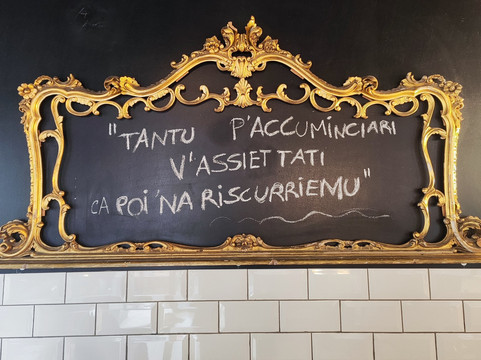 "TANTU P'ACCUMINCIARI
V'ASSIETTATI
CA POI 'NA RISCURRIEMU"